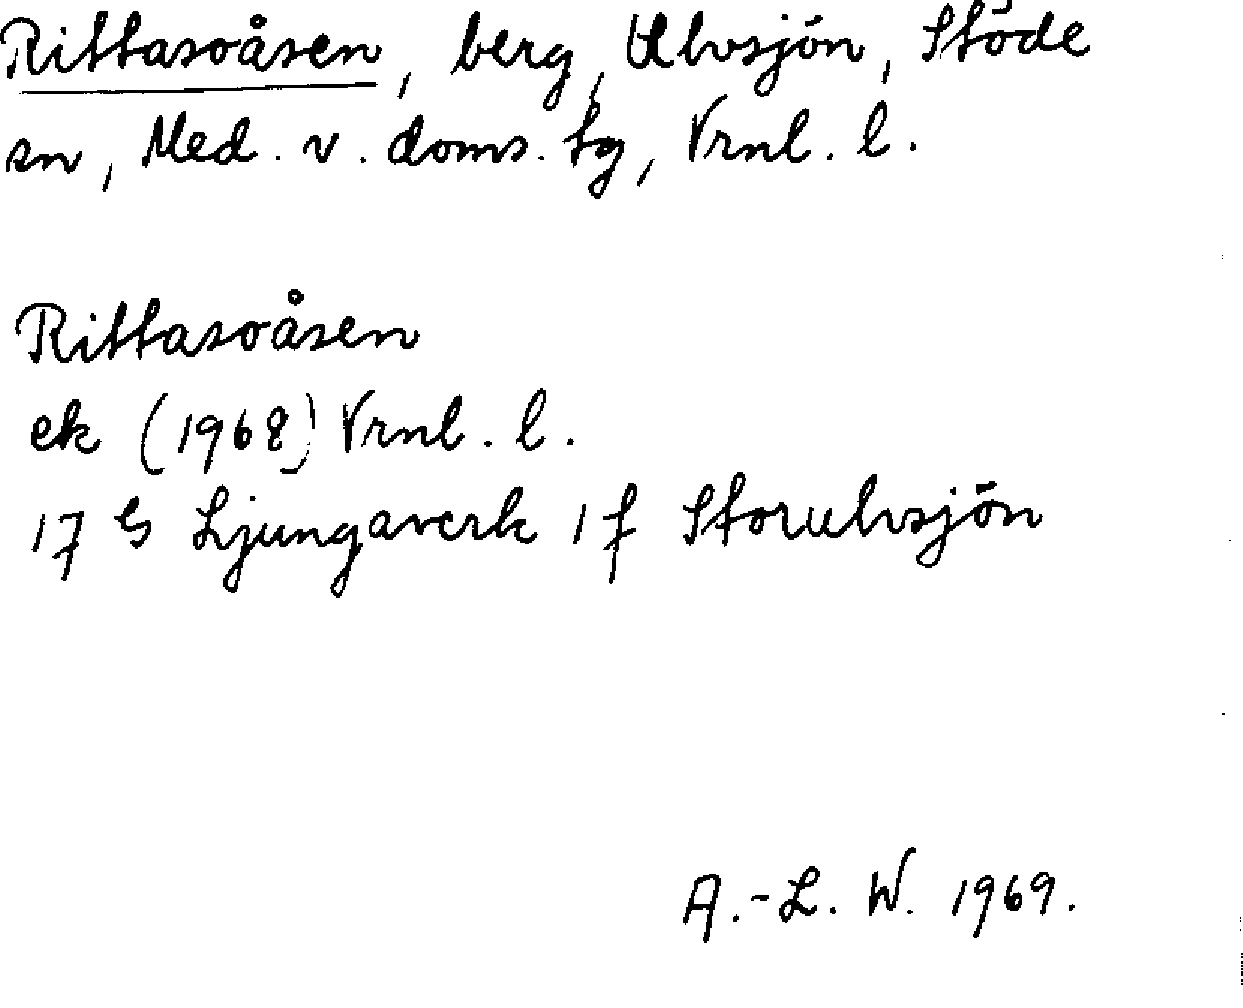 Rittasoåsen, berg, Ulvsjön, Stöde
sn, Med. v. doms. tg, Vrnl. l.
Rittasoåsen
ek (1968) Vrnl. l.
17 G Ljungaverk 1 f Storulvsjön
A.-L. W. 1969.